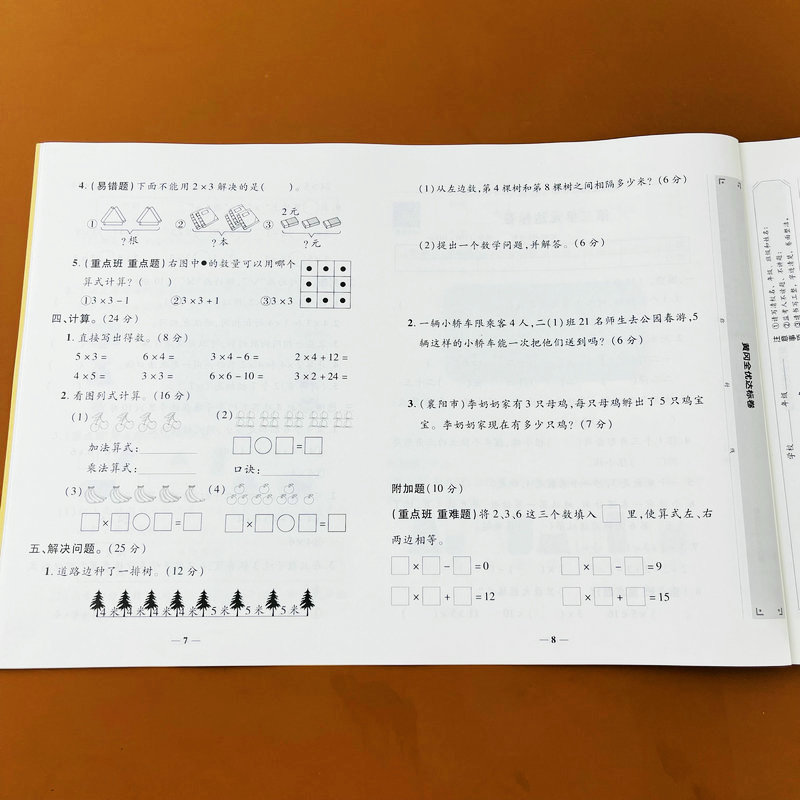 4.(易错题)下面不能用2×3解决的是(　　)。
2元
①　②　③
?根　?本　?元
5.(重点班 重点题)右图中●的数量可以用哪个
算式计算?(　　)
①3×3-1　②3×3+1　③3×3
四、计算。(24分)
1.直接写出得数。(8分)
5×3=　6×4=　3×4-6=　2×4+12=
4×5=　3×3=　6×6-10=　3×2+24=
2.看图列式计算。(16分)
(1)　(2)
加法算式:　□○□=□
乘法算式:　口诀:
(3)　(4)
□×□○□=□　□×□○□=□
五、解决问题。(25分)
1.道路边种了一排树。(12分)
4米 4米 4米 4米 5米 5米 5米
—7—
(1)从左边数,第4棵树和第8棵树之间相隔多少米?(6分)
(2)提出一个数学问题,并解答。(6分)
2.一辆小轿车限乘客4人,二(1)班21名师生去公园春游,5
辆这样的小轿车能一次把他们送到吗?(6分)
3.(襄阳市)李奶奶家有3只母鸡,每只母鸡孵出了5只鸡宝
宝。李奶奶家现在有多少只鸡?(7分)
附加题(10分)
(重点班 重难题)将2,3,6这三个数填入□里,使算式左、右
两边相等。
□×□-□=0　□×□-□=9
□×□+□=12　□×□+□=15
—8—
黄冈全优达标卷
学校　年级
注意事项
①请写清校名、年级、班级和姓名;
②监考人不读题、不讲题;
③请书写工整、字迹清楚、卷面整洁。